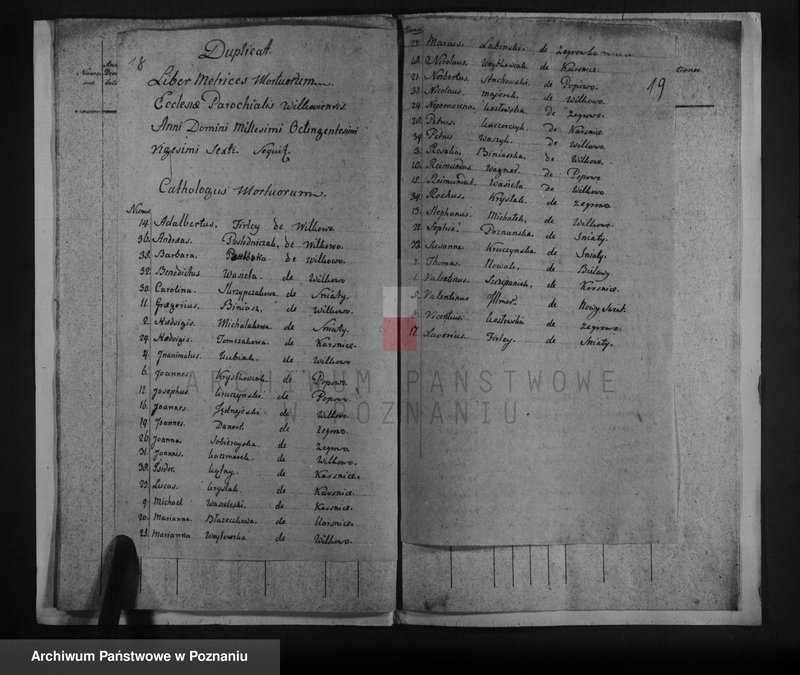 18
Duplicat
Liber Metrices Mortuorum
Ecclesiæ Parochialis Wilkoviensis
Anni Domini Millesimi Octingentesimi
Vigesimi Sexti
Cathologus Mortuorum
Numer
14. Adalbertus. Firley de Wilkowo
36. Andreas. Posledniczak, de Wilkowo.
33. Barbara de Wilkowo
32. Benedictus Wasiela de Wilkowo
30. Carolina. Skrzypczakowa de Sniaty.
11. Gregorius. Biniasz, de Wilkowo.
2. Hedvigis. Michalakowa de Sniaty.
29. Hedvigis. Tomczakowa de Karsnice.
Jnanimatus. de Wilkowo
6. Joannes Krystkowiak de Popowo.
12. Josephus. Kruczynski de Popowo.
16. Joannes. de Wilkowo
19. Joannes. de Zegrowo.
26. Joanna. de Zegrowo
31. Joannis. Kaczmarek. de Wilkowo.
38. Isidor. de Karsnice.
23. Lucas. Krystek de Karsnice.
9. Michael Wasielski. de Karsnice.
20. Marianna Błaszczkowa. de Karsnice.
25. Marianna Woytowska de Wilkowo.
19
tiones
Marcus Labinski de Zegrowko
Nicolaus. Woytkowiak de Karsnice
21. Norbertus. Stachowski de Popowo.
37. Nicolaus majorek. de Wilkowo.
24. Nepomucena Kozlowska de Zegrowo.
Petrus. Kaczorczyk de Karsnice
39. Petrus Waszyk. de Wilkowo
3. Rosalia Biniaszka. de Wilkowo.
10. Reimundus Wagner. de Popowo
15. Reimundus. Wasiela de Wilkowo
34. Rochus. Krystek. de Zegrowo
13. Stephanus. Michalek. de Wilkowo.
22. Sophia. Poznanska. de Sniaty.
Susanna Kruczynska de Sniaty.
7. Thomas. Nowak. de Bielawy.
1. Valentinus. Szczepaniak, de Karsnice.
5. Valentinus de Nowy Swiat.
Vicentius. Kozlowski de Zegrowo.
17. Laverius. Firley de Sniaty.
ARCHIWUM PAŃSTWOWE
W POZNANIU
Archiwum Państwowe w Poznaniu